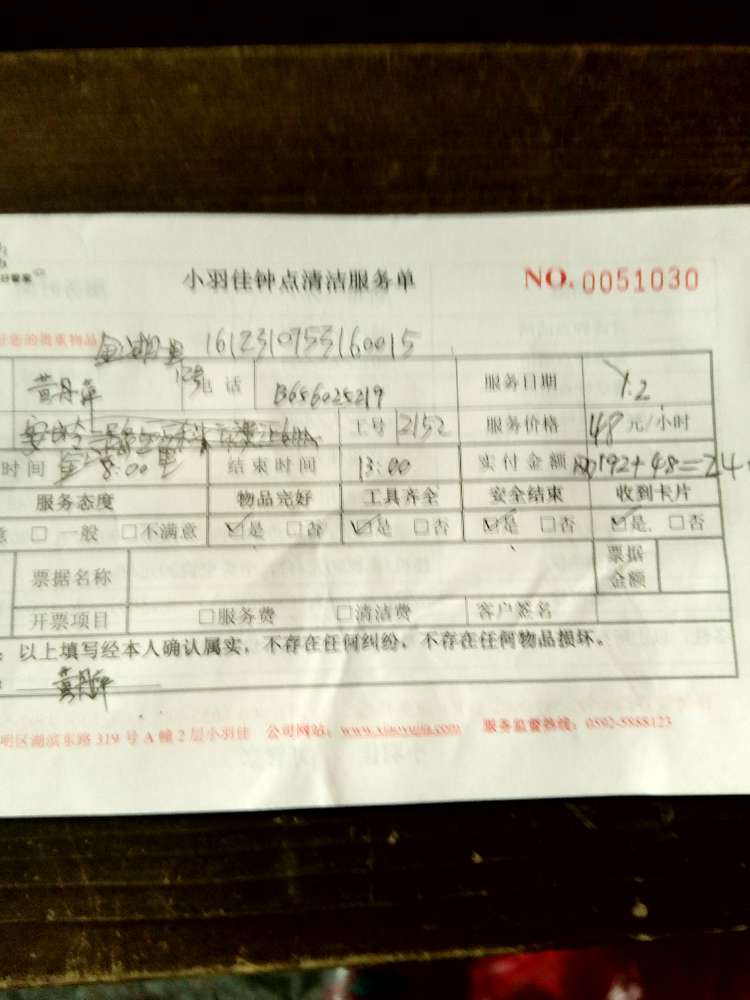 小羽佳钟点清洁服务单 NO. 0051030
您的贵重物品 金湖里 1612310753160015
黄丹萍 12号 电话 13656025219 服务日期 1.2
工号 2152 服务价格 48元/小时
时间 8:00 结束时间 13:00 实付金额 192+48=24
服务态度 物品完好 工具齐全 安全结束 收到卡片
意 □一般 □不满意 ☑是 □否 ☑是 □否 ☑是 □否 ☑是 □否
票据名称 票据金额
开票项目 □服务费 □清洁费 客户签名
：以上填写经本人确认属实，不存在任何纠纷，不存在任何物品损坏。
：黄丹萍
明区湖滨东路 319 号 A 幢 2 层小羽佳 公司网站：www.xiaoyujia.com 服务监督热线：0592-5888123